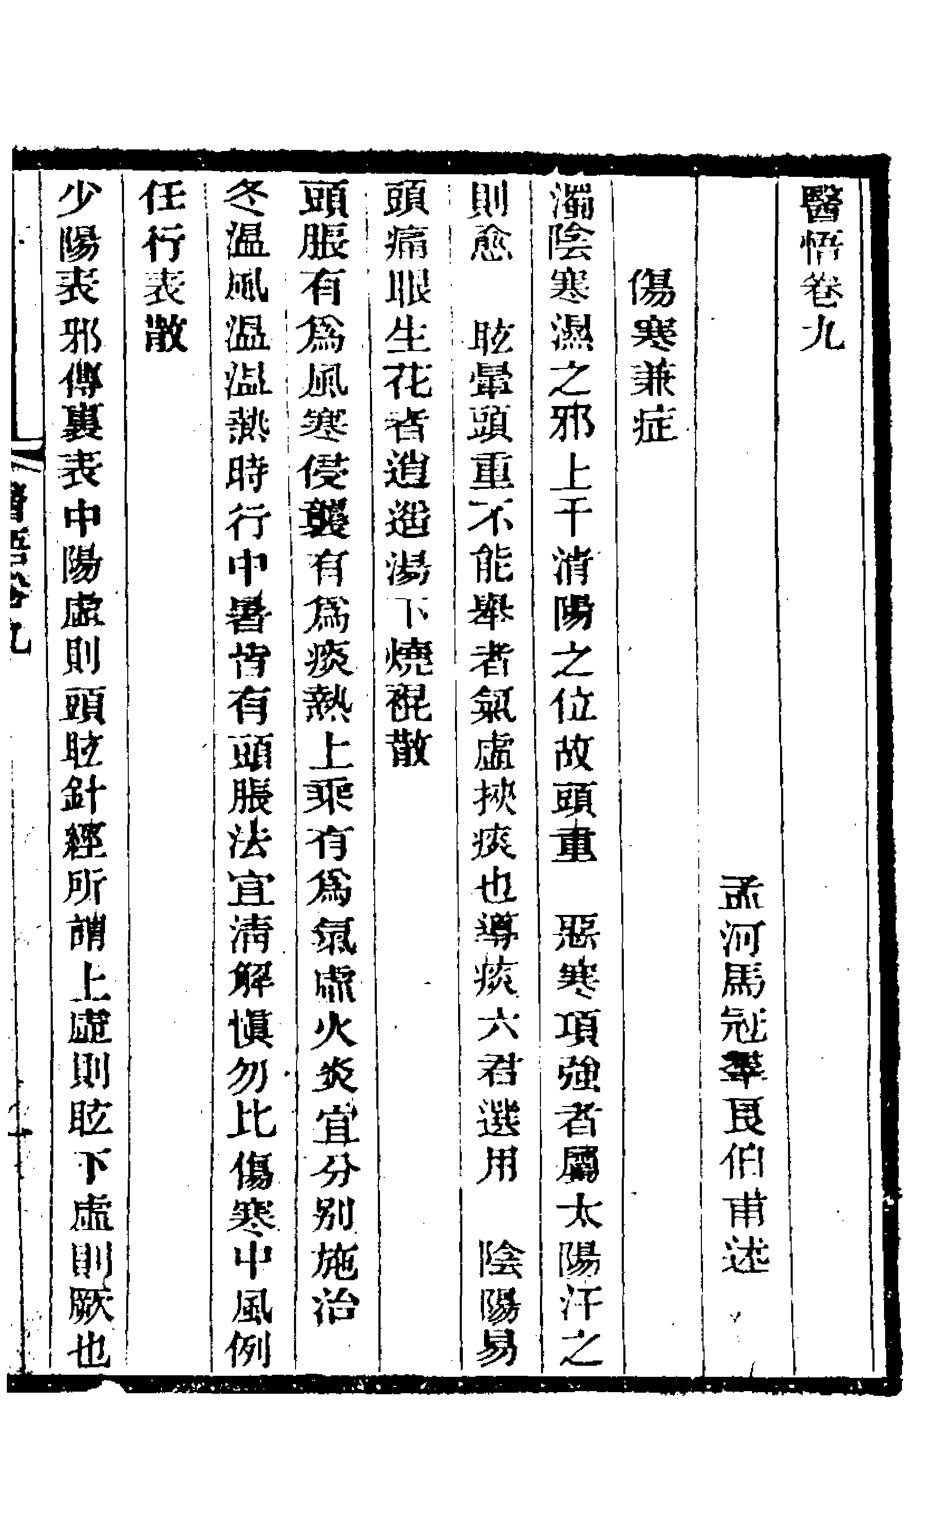 醫悟卷九
孟河馬冠羣良伯甫述
傷寒兼症
濁陰寒濕之邪上干清陽之位故頭重　惡寒項強者屬太陽汗之
則愈　眩暈頭重不能舉者氣虛挾痰也導痰六君選用　陰陽易
頭痛眼生花者逍遙湯下燒裩散
頭脹有為風寒侵襲有為痰熱上乘有為氣虛火炎宜分別施治
冬溫風溫溫熱時行中暑皆有頭脹法宜清解慎勿比傷寒中風例
任行表散
少陽表邪傳裏表中陽虛則頭眩針經所謂上虛則眩下虛則厥也
醫悟卷九
一